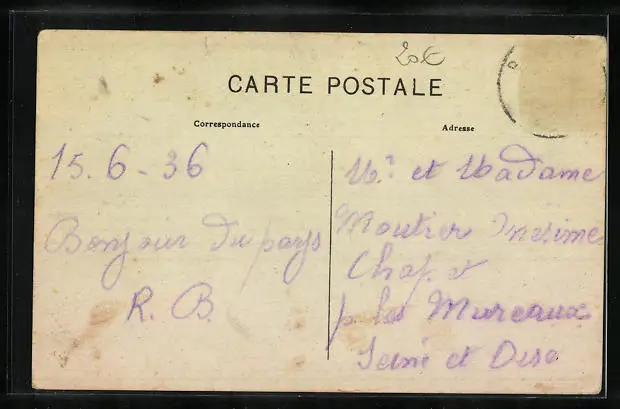 20€
CARTE POSTALE
Correspondance
Adresse
15.6-36
Bonjour du pays
R. B.
Mr et Madame
Moutier
Chap. et
p. les Mureaux
Seine et Oise